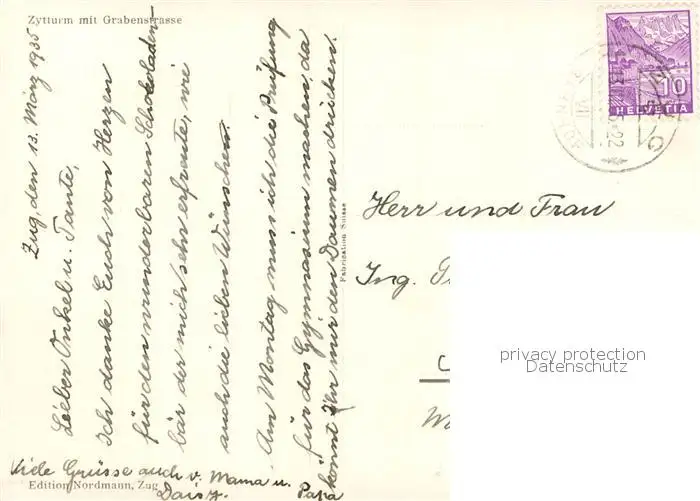 Zytturm mit Grabenstrasse
Zug, den 13. März 1935
Lieber Onkel u. Tante,
Ich danke Euch von Herzen
für den wunderbaren Schokoladen-
bär der mich sehr erfreute, wie
auch die lieben Wünschen.
Am Montag muss ich die Prüfung
für das Gymnasium machen, da
könnt Ihr mir den Daumen drücken.
Viele Grüsse auch v. Mama u.
Papa
Edition Nordmann, Zug
Fabrication Suisse
10
HELVETIA
Herr und Frau
Ing.
privacy protection
Datenschutz